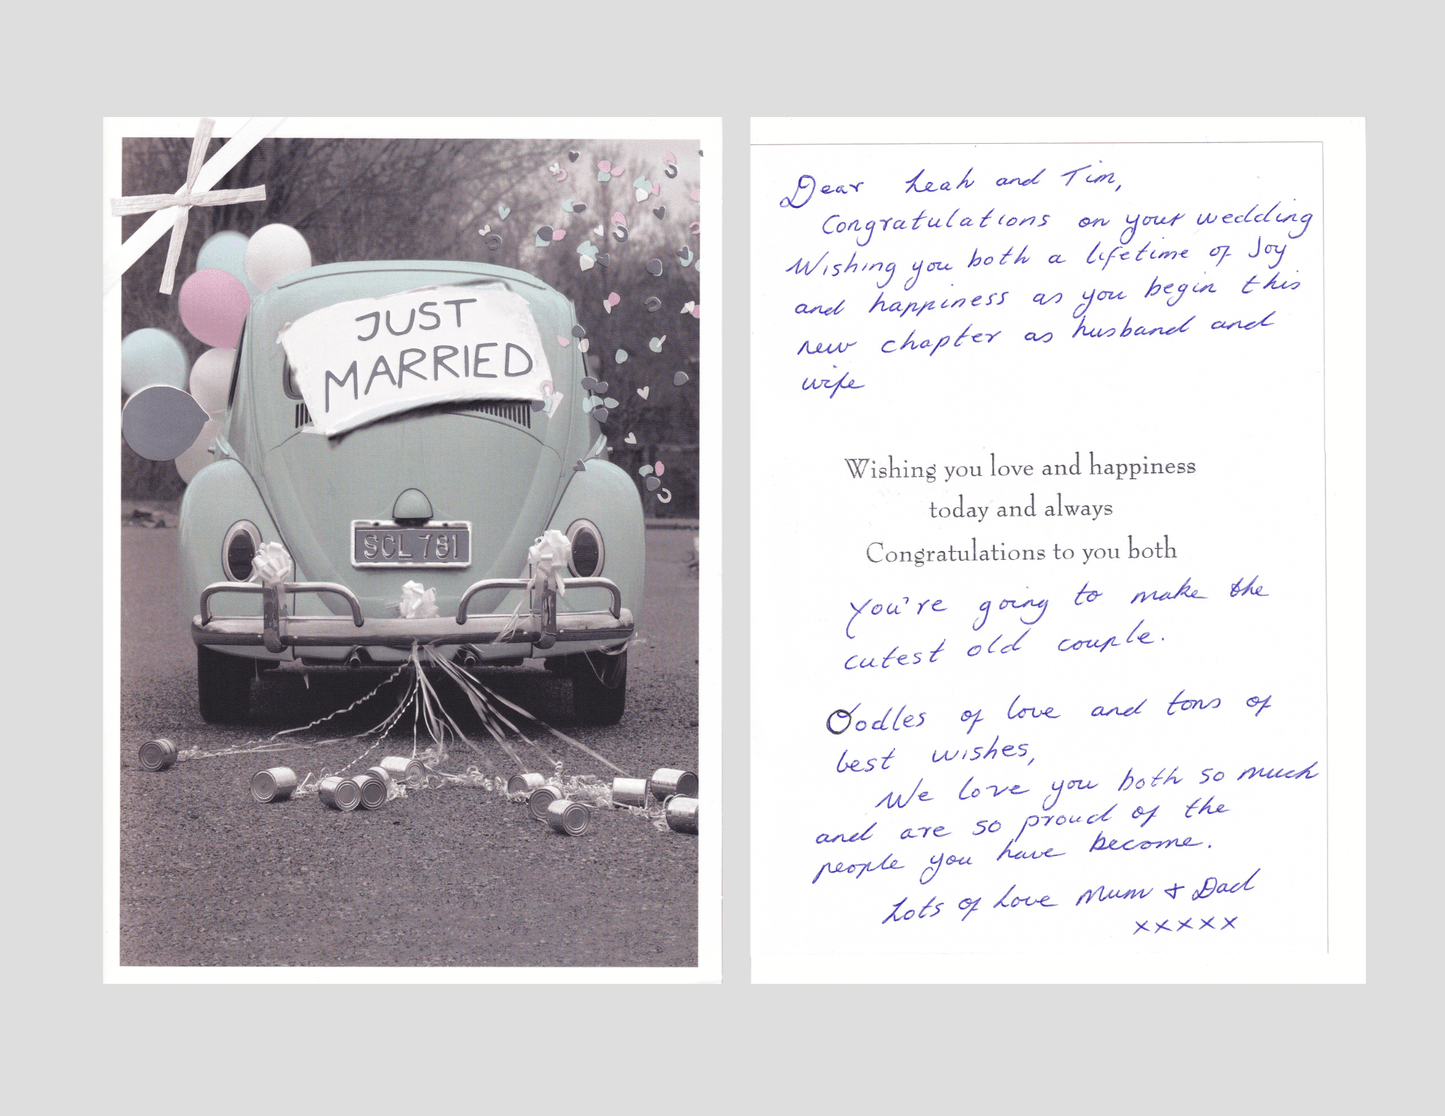 JUST
MARRIED
SCL 781
Dear Leah and Tim,
Congratulations on your wedding
Wishing you both a lifetime of Joy
and happiness as you begin this
new chapter as husband and
wife
Wishing you love and happiness
today and always
Congratulations to you both
You're going to make the
cutest old couple.
Oodles of love and tons of
best wishes,
We love you both so much
and are so proud of the
people you have become.
Lots of Love Mum & Dad
xxxxx